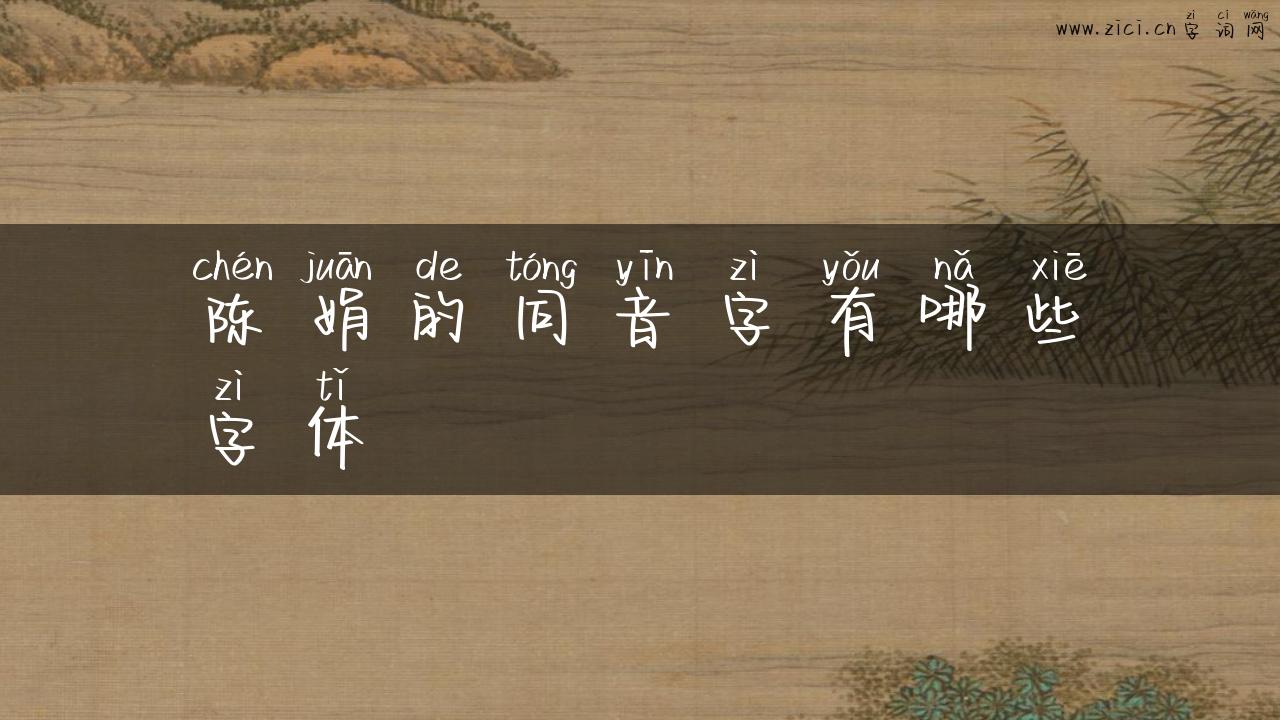 zì cí wǎng
www.zici.cn字词网
chén juān de tóng yīn zì yǒu nǎ xiē
陈娟的同音字有哪些
zì tǐ
字体